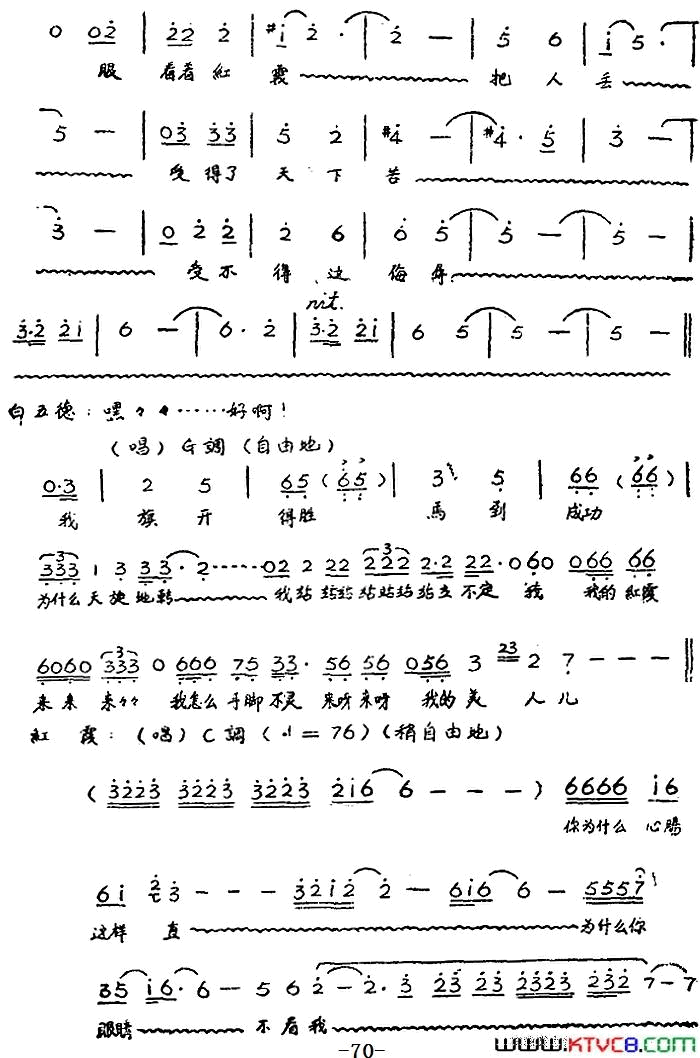 0 02 | 22 2 | #i 2· | 2 — | 5 6 | i 5· |
眼 看看紅 霞 把 人 丢
5 — | 03 33 | 5 2 | #4 — | #4· 5 | 3 — |
受 得了 天 下 苦
3 — | 0 2 2 | 2 6 | 6 5 | 5 — | 5 — |
受不 得 这 侮辱
rit.
3·2 2i | 6 — | 6· 2 | 3·2 2i | 6 5 | 5 — | 5 — ||
白五德：嘿々々……好啊！
（唱）G調（自由地）
0·3 | 2 5 | 65 (65) | 3 5 | 66 (66) |
我 旗 开 得胜 馬 到 成功
333 1 3 33· 2……02 2 22 222 2·2 22·060 066 66
为什么天旋地轉 我站 站站站站站站立不定 我 我的紅霞
6060 333 0 666 75 33· 56 56 056 3 23 2 7 — — — ||
来来 来々々 我怎么手脚不灵 来呀来呀 我的美 人儿
紅 霞：（唱）C調（♩＝76）（稍自由地）
(3223 3223 3223 2i6 6 — — — ) 6666 i6
你为什么 心腸
6i 2 3 — — — 32i2 2 — 6i6 6 — 5557
这样 直 为什么你
35 i6· 6 — 5 6 2 — 2· 3 23 23 2323 232 7 — 7
眼睛 不看我
-70-
www.KTVC8.com